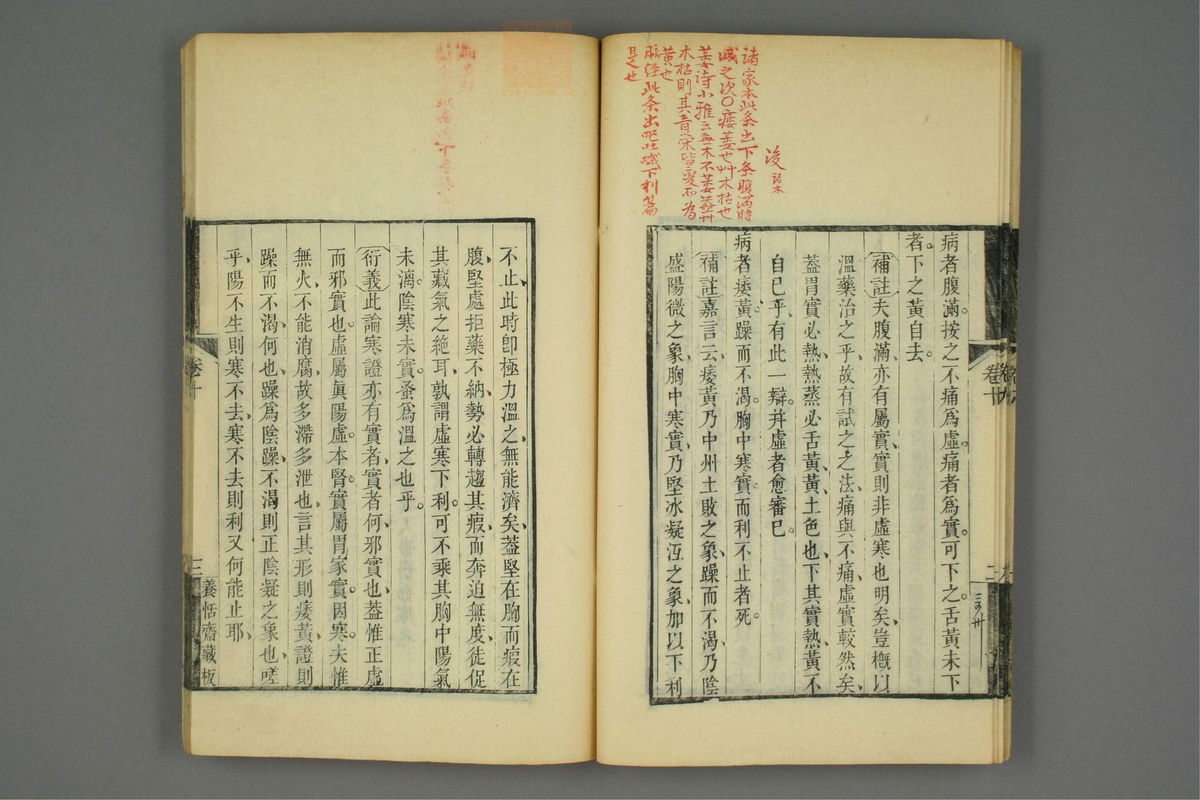 諸家本此条出下条腹滿時
減之次〇痿萎也艸木枯也
萎詩小雅云無木不萎蓋艸
木枯則其青栄皆変而為
黄也
脈経此条出嘔吐噦下利篇
是也
病者腹滿。按之不痛爲虛。痛者爲實。可下之。舌黃未下
者。下之黃自去。
補註夫腹滿亦有屬實、實則非虛寒也明矣、豈概以
溫藥治之乎、故有試之之法、痛與不痛、虛實較然矣、
葢胃實必熱、熱蒸必舌黃、黃、土色也、下其實熱、黃不
自已乎、有此一辯。幷虛者愈審已。
病者痿黃。躁而不渴。胸中寒實。而利不止者。死。
補註嘉言云、痿黃乃中州土敗之象、躁而不渴、乃陰
盛陽微之象、胸中寒實、乃堅冰凝冱之象、加以下利
卷十
二
不止、此時卽極力溫之、無能濟矣、葢堅在胸而瘕在
腹、堅處拒藥不納、勢必轉趨其瘕、而奔迫無度、徒促
其藏氣之絶耳、孰謂虛寒下利。可不乘其胸中陽氣
未漓。陰寒未實。蚤爲溫之也乎。
衍義此論寒證亦有實者、實者何、邪實也、葢惟正虛
而邪實也。虛屬眞陽虛。本腎。實屬胃家實。因寒。夫惟
無火、不能消腐、故多滯多泄也、言其形則痿黃、證則
躁而不渴、何也、躁爲陰躁、不渴則正陰凝之象也、嗟
乎、陽不生則寒不去、寒不去則利又何能止耶、
卷十
三
養恬齋藏板